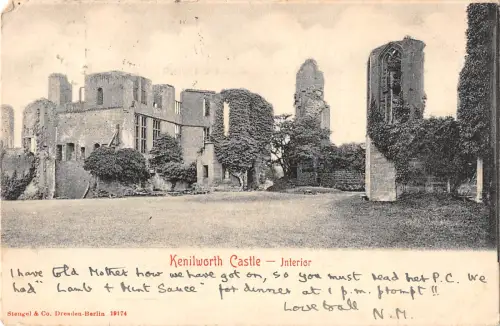 Kenilworth Castle – Interior
I have told Mother how we have got on, so you must read her P.C. We
had "Lamb & Mint Sauce" for dinner at 1 p.m. prompt !!
Love to all
N.M.
Stengel & Co. Dresden-Berlin 19174